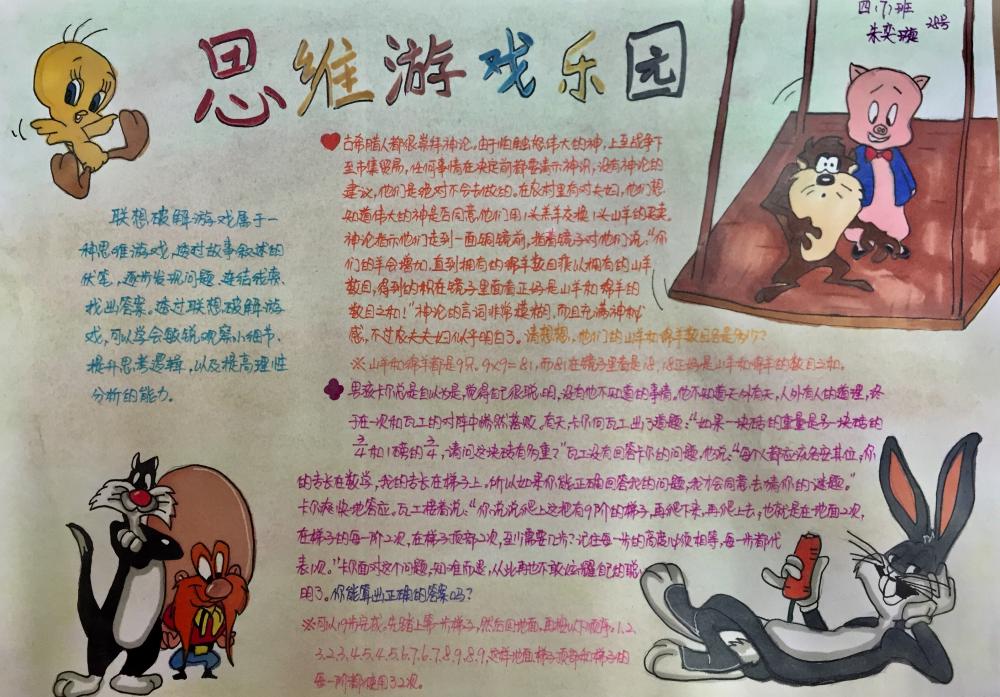 思维游戏乐园
四(7)班
朱奕璇 28号
联想破解游戏属于一
种思维游戏,透过故事叙述的
伏笔,逐步发现问题、连结线索、
找出答案。透过联想破解游
戏,可以学会敏锐观察小细节、
提升思考逻辑,以及提高理性
分析的能力。
古希腊人都很崇拜神论。由于怕触怒伟大的神,上至战争下
至市集贸易,任何事情在决定前都要请示神讯,没有神论的
建议,他们是绝对不会去做的。在农村里有对夫妇,他们想
知道伟大的神是否同意他们用1头羔羊交换1头山羊的买卖。
神论指示他们走到一面铜镜前,指着镜子对他们说:“你
们的羊会增加,直到拥有的绵羊数目乘以拥有的山羊
数目,得到的积在镜子里面看正好是山羊和绵羊的
数目之和!”神论的言词非常模糊,而且充满神秘
感,不过农夫夫妇似乎明白了。请想想,他们的山羊和绵羊数目各是多少?
※山羊和绵羊都是9只。9×9=81,而81在镜子里看是18,18正好是山羊和绵羊的数目之和。
男孩卡尔总是自以为是,觉得自己很聪明,没有他不知道的事情。他不知道天外有天,人外有人的道理,终
于在一次和瓦工的对阵中惨然落败。有天,卡尔向瓦工出了道题:“如果一块砖的重量是另一块砖的
3/4和1磅的3/4,请问这块砖有多重?”瓦工没有回答卡尔的问题,他说:“每个人都应该各安其位,你
的专长在数学,我的专长在梯子上。所以如果你能正确回答我的问题,我才会同意去猜你的谜题。”
卡尔爽快地答应。瓦工接着说:“你说说爬上这把有9阶的梯子,再爬下来,再爬上去,也就是在地面2次,
在梯子的每一阶2次,在梯子顶部2次,至少需要几步?记住每一步的高度必须相等,每一步都代
表1次。”卡尔面对这个问题,知难而退,从此再也不敢炫耀自己的聪
明了。你能算出正确的答案吗?
※可以19步完成。先踏上第一步梯子,然后回地面,再按以下顺序:1、2、
3、2、3、4、5、4、5、6、7、6、7、8、9、8、9,这样地面、梯子顶部和梯子的
每一阶都使用了2次。